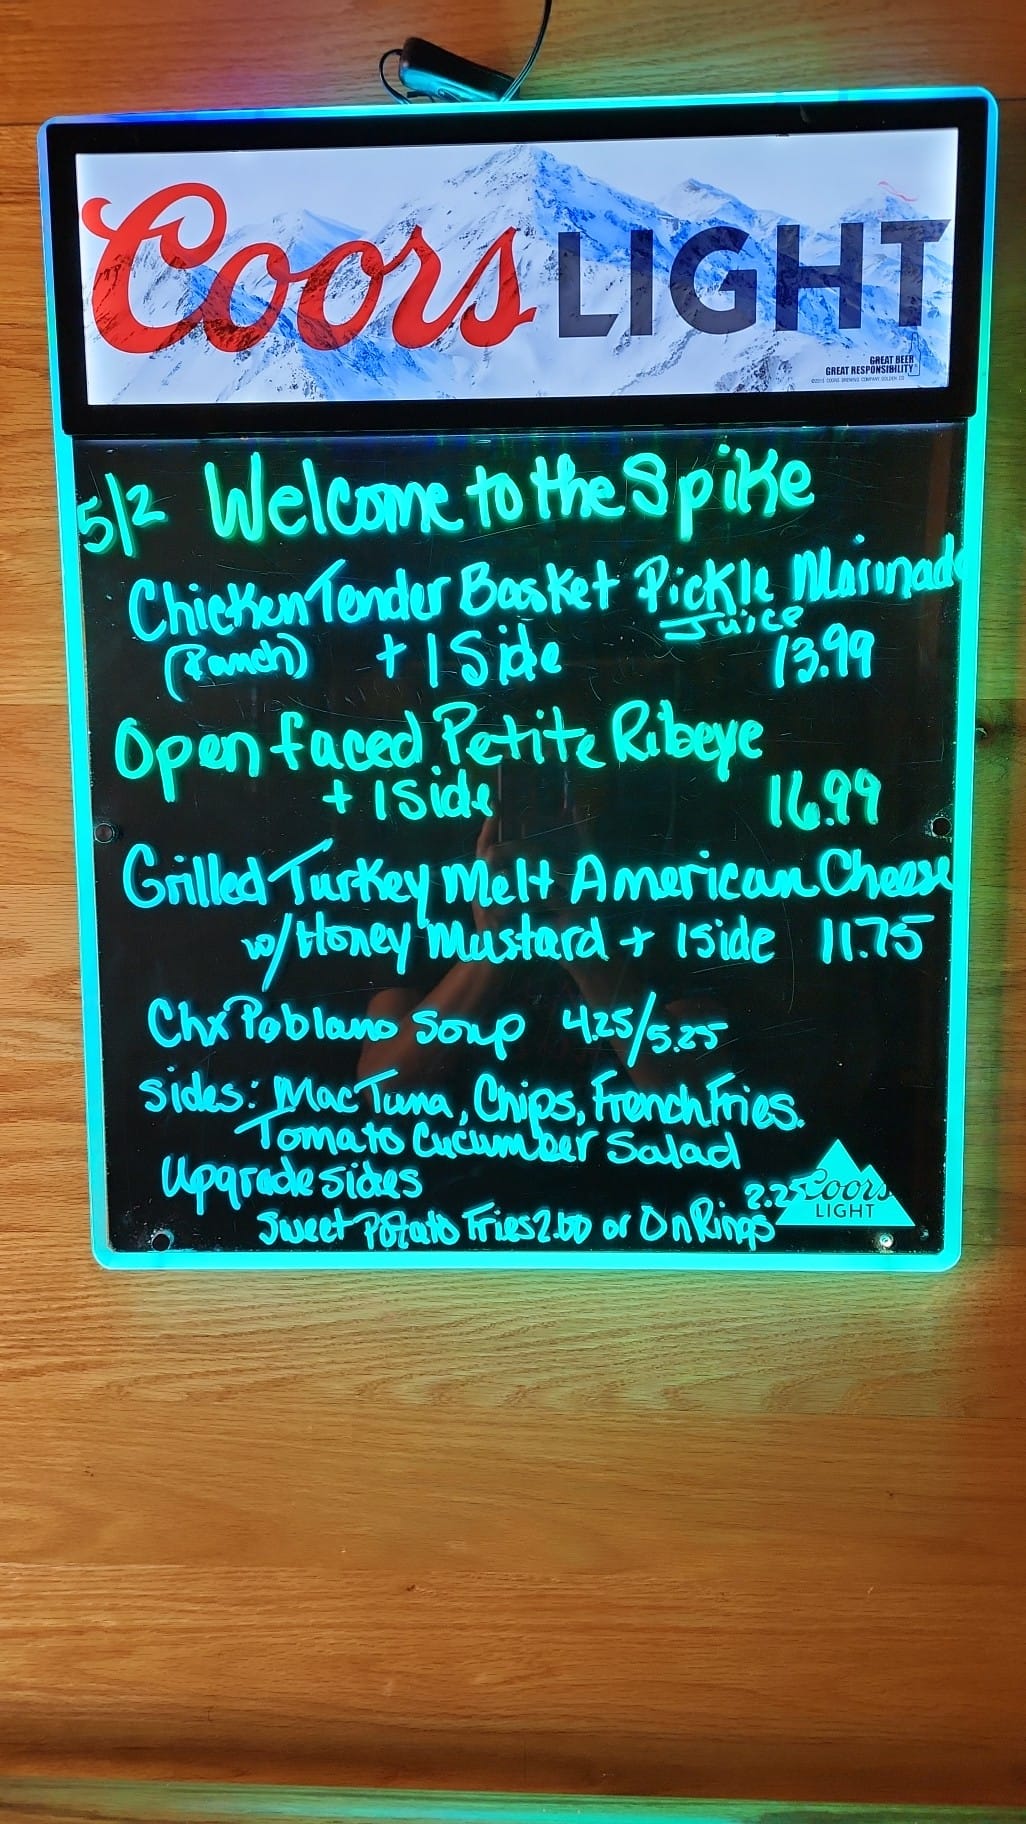 Coors LIGHT
GREAT BEER
GREAT RESPONSIBILITY
5/2 Welcome to the Spike
Chicken Tender Basket Pickle Marinade
Juice
(Ranch) + 1 Side 13.99
Open faced Petite Ribeye
+ 1 side 16.99
Grilled Turkey Melt American Cheese
w/ Honey Mustard + 1 side 11.75
Chx Poblano Soup 4.25/5.25
Sides: Mac Tuna, Chips, French Fries.
Tomato Cucumber Salad
Upgrade sides
2.25
Sweet Potato Fries 2.00 or On Rings
Coors
LIGHT